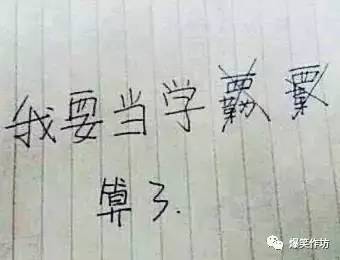 我要当学
算了.
爆笑作坊